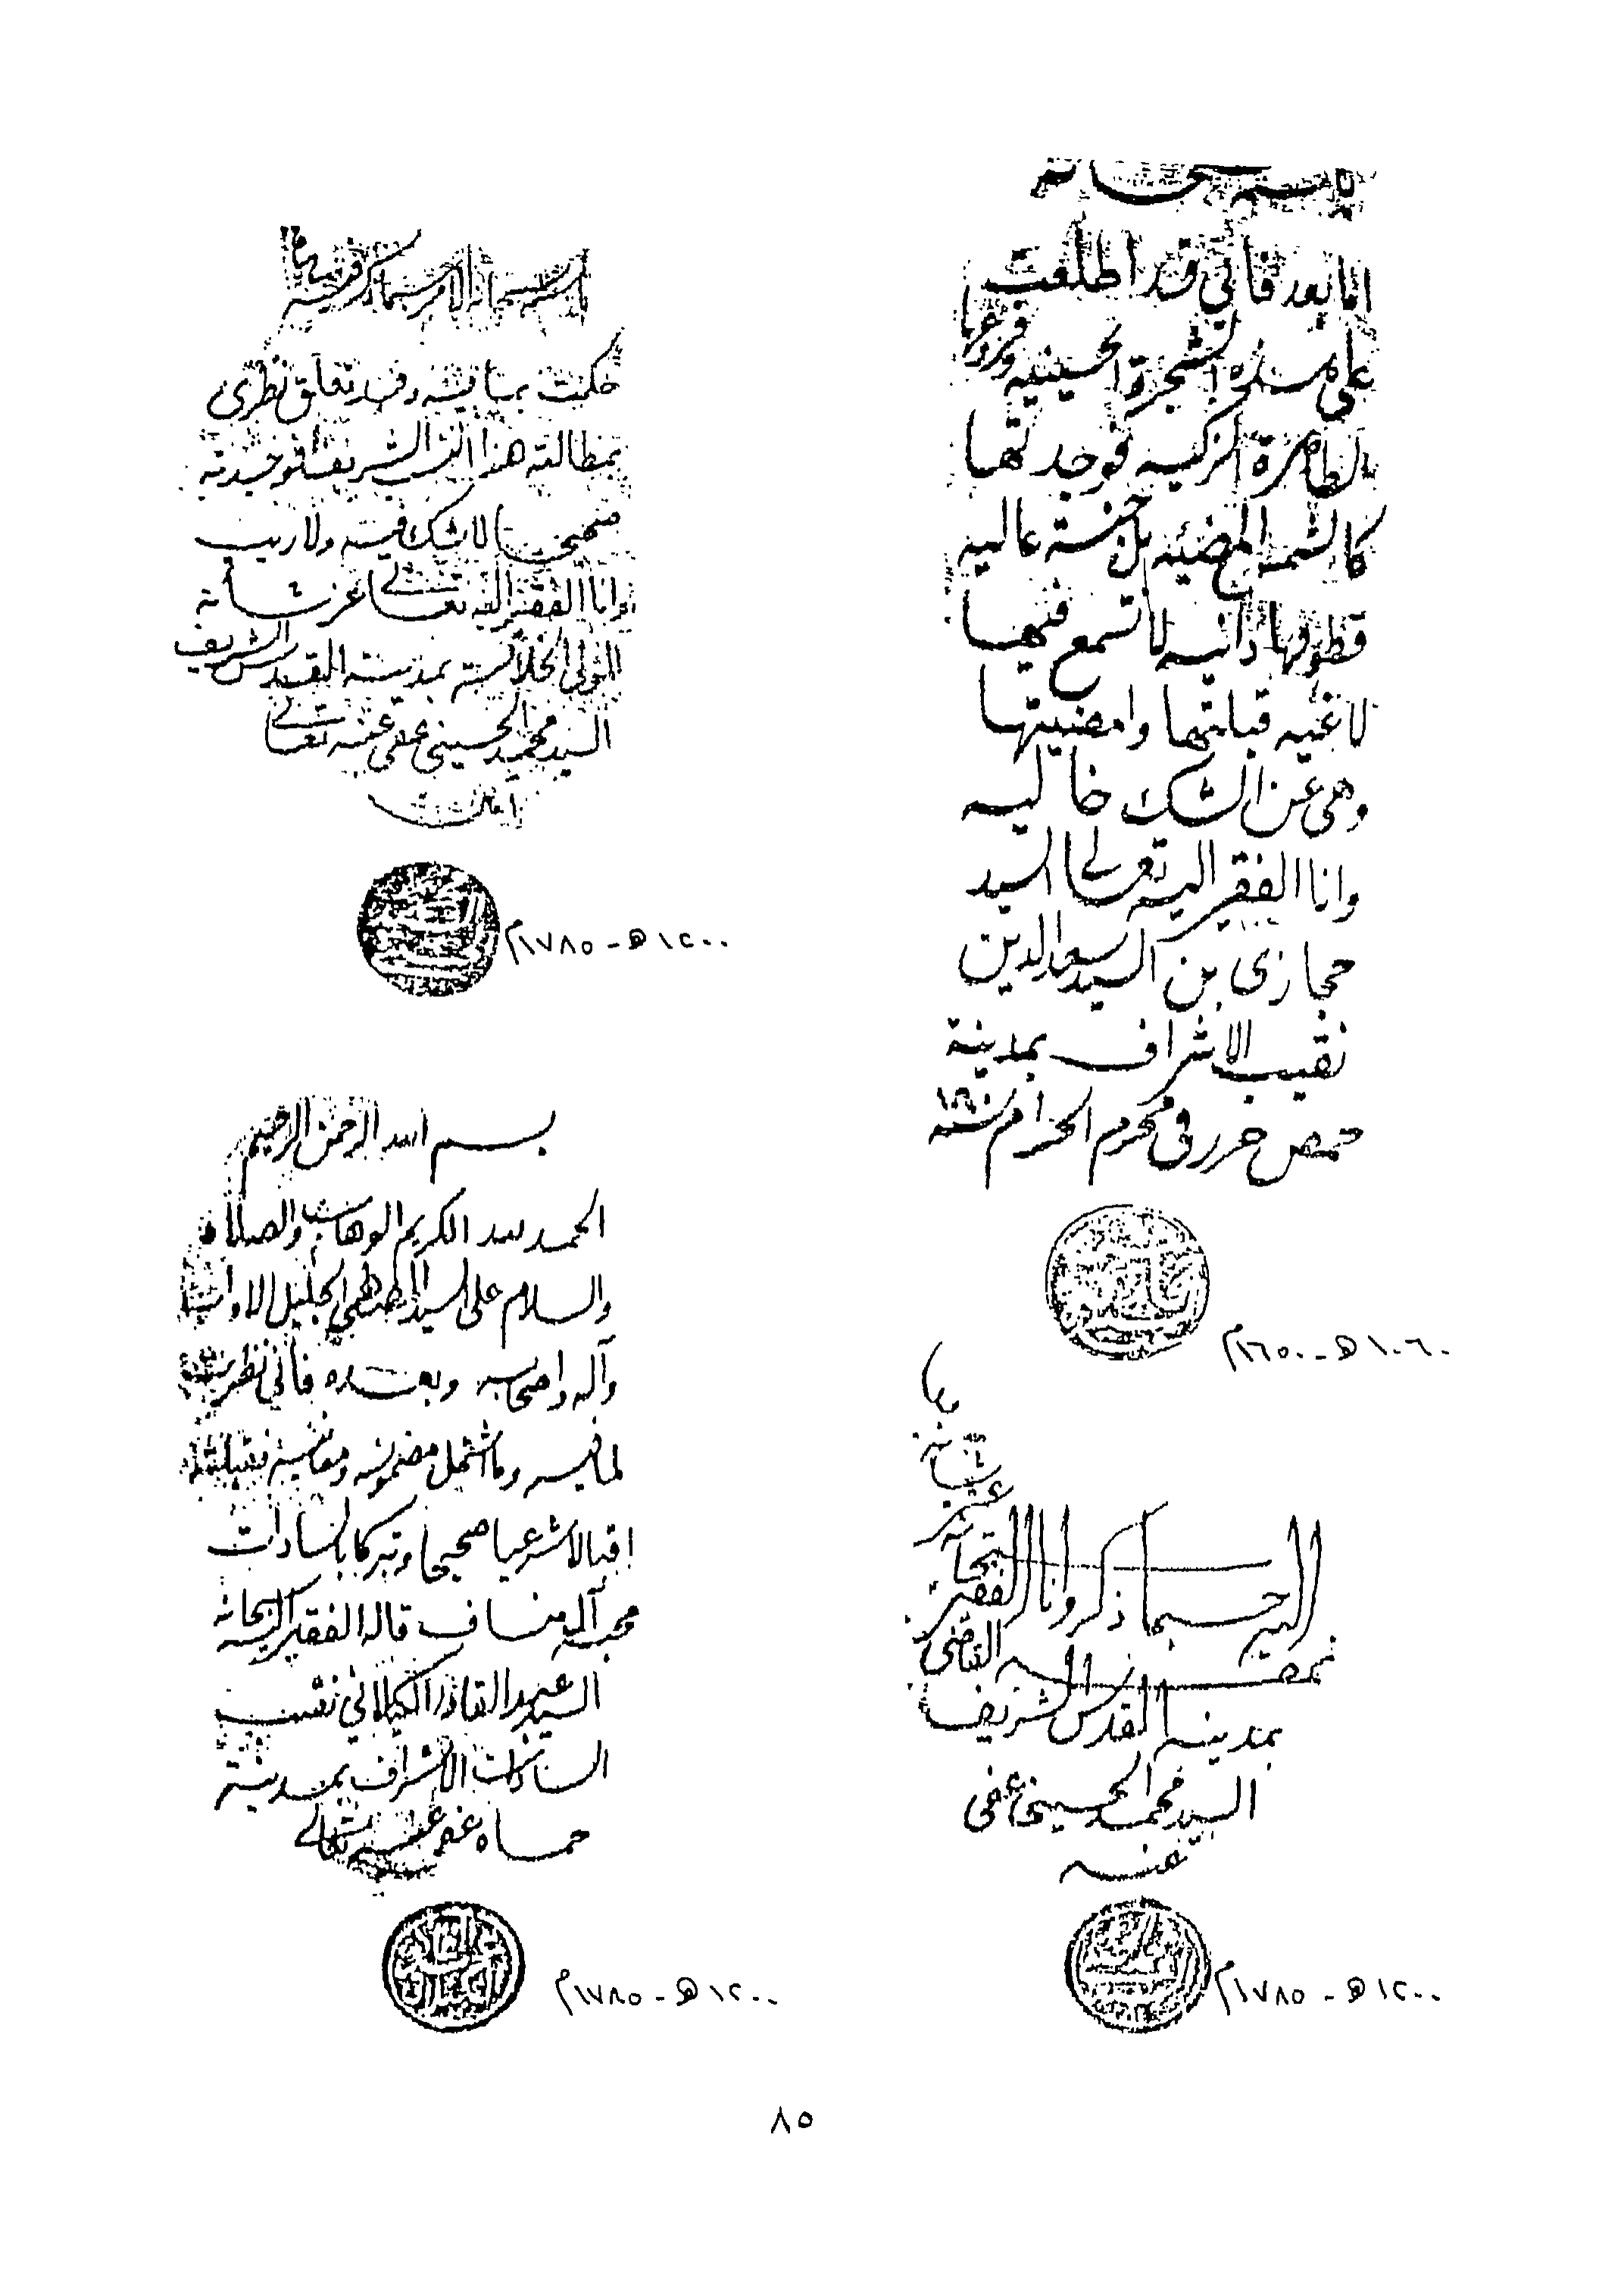 باسمه سبحانه
اما بعد فاني قد اطلعت
على هذه الشجرة الحسينيه وفروعها
الطاهرة الزكيه فوجدتها
كالشمس المضيئه بل جنة عاليه
قطوفها دانيه لا تسمع فيها
لاغيه قبلتها وامضيتها
وهي عن الشك خاليه
وانا الفقير اليه تعالى السيد
حجازي بن السيد سعد الدين
نقيب الاشراف بمدينة
حمص حرر في محرم الحرام سنة
١٠٦٠ هـ - ١٦٥٠ م
حسبما ذكر وانا الفقير
اليه سبحانه
عز شانه
القاضي
بمدينة القدس الشريف
السيد محمد الحسيني عفي
عنه
١٢٠٠ هـ - ١٧٨٥ م
باسمه سبحانه الامر حسبما ذكر فيه
حكمت بما فيه وقد تعلق نظري
بمطالعة هذا النسب الشريف فوجدته
صحيحا لا شك فيه ولا ريب
وانا الفقير اليه تعالى عز شأنه
المولى الخلافة بمدينة القدس الشريف
السيد محمد الحسيني عفي عنه تعالى
١٢٠٠ هـ - ١٧٨٥ م
بسم الله الرحمن الرحيم
الحمد لله الكريم الوهاب والصلاة
والسلام على السيد المصطفى الجليل الاواب
وآله واصحابه وبعده فاني نظرت
لما فيه وما اشتمل مضمونه ومعانيه فقبلته
اقبالا شرعيا صحيحا وتبركا بالسادات
محب آل مناف قاله الفقير اليه سبحانه
السيد عبد القادر الكيلاني نقيب
السادات الاشراف بمدينة
حماه غفر عنه تعالى
١٢٠٠ هـ - ١٧٨٥ م
٨٥